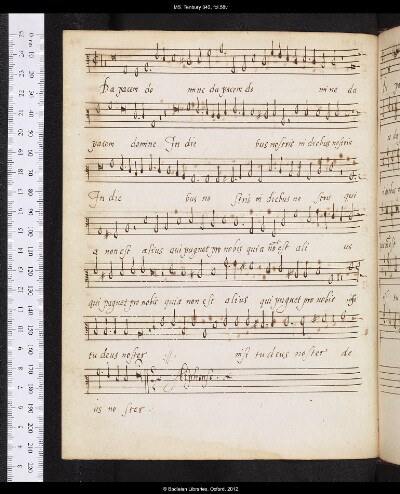 MS. Tenbury 340, fol.58v
Da pacem do mine da pacem do mi ne da
pacem domine In die bus nostris in diebus nostris
In die bus no stris in diebus no stris qui
a non est alius qui pugnet pro nobis quia non est ali us
qui pugnet pro nobis quia non est alius qui pugnet pro nobis nisi
tu deus noster nisi tu deus noster de
us no ster
© Bodleian Libraries, Oxford, 2012